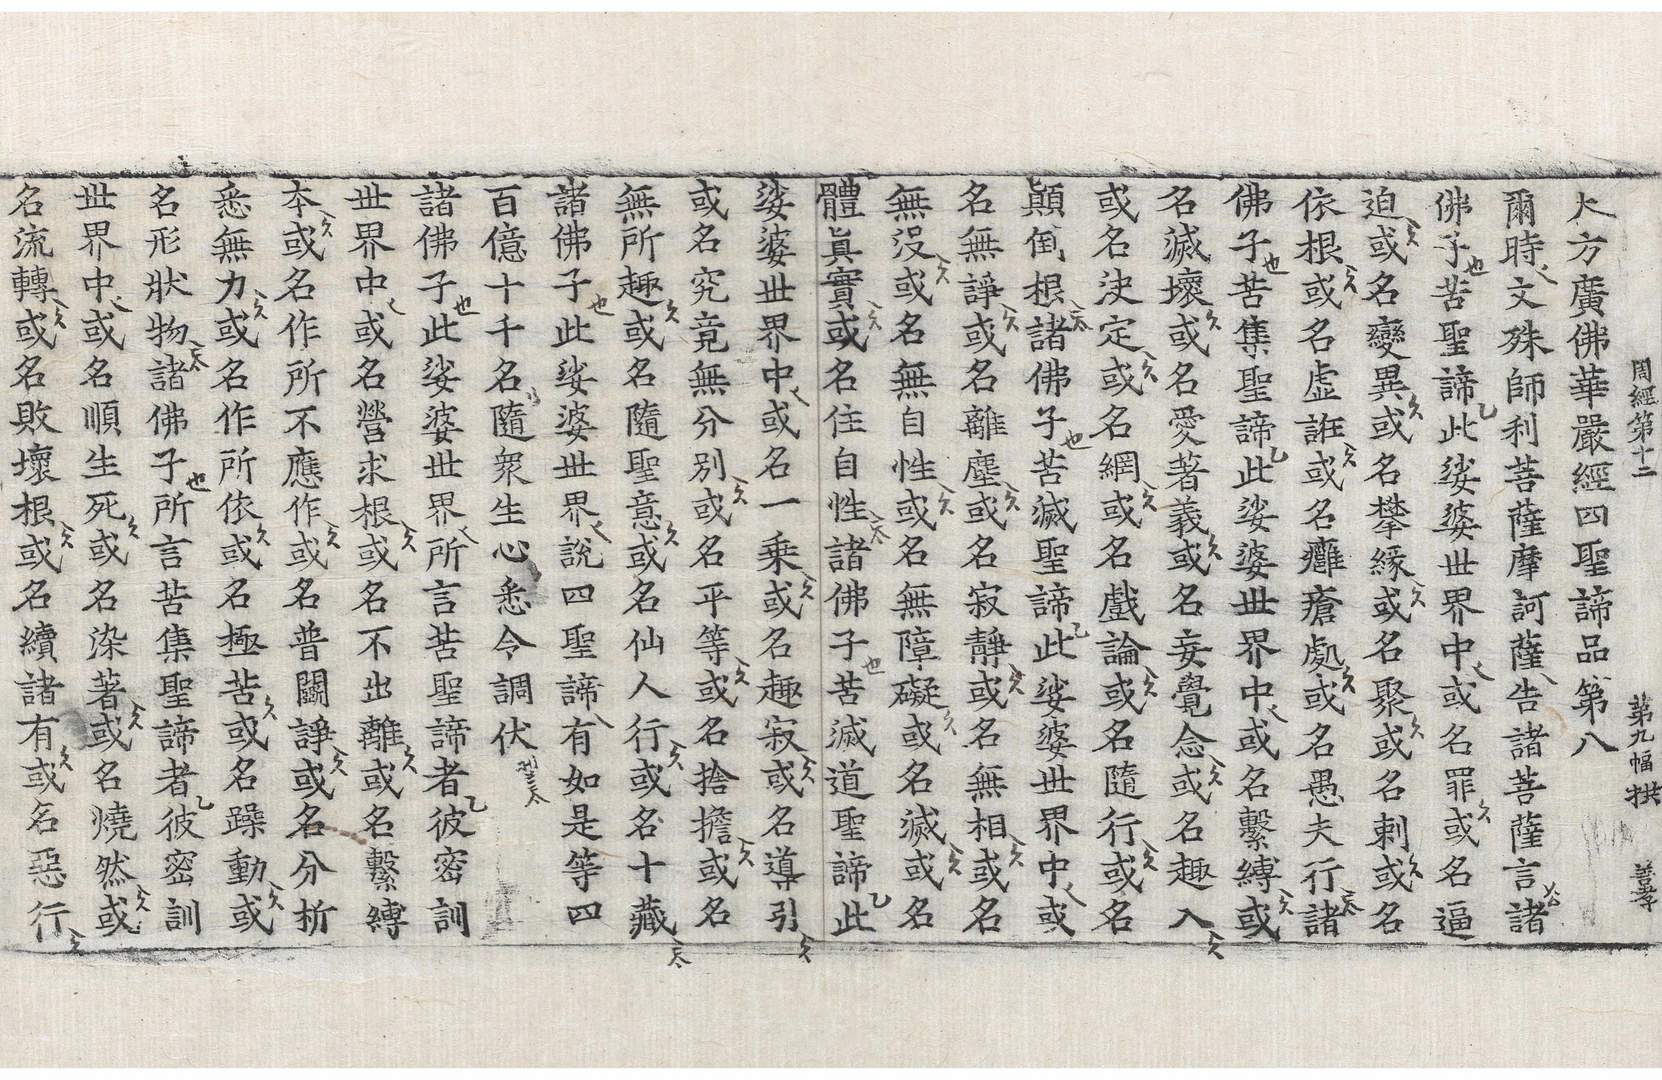 周經第十二 第九幅 拱 善孝
大方廣佛華嚴經四聖諦品第八
爾時文殊師利菩薩摩訶薩告諸菩薩言諸
佛子苦聖諦此娑婆世界中或名罪或名逼
迫或名變異或名攀緣或名聚或名刺或名
依根或名虛誑或名癰瘡處或名愚夫行諸
佛子苦集聖諦此娑婆世界中或名繫縛或
名滅壞或名愛著義或名妄覺念或名趣入
或名決定或名網或名戲論或名隨行或名
顚倒根諸佛子苦滅聖諦此娑婆世界中或
名無諍或名離塵或名寂靜或名無相或名
無沒或名無自性或名無障礙或名滅或名
體眞實或名住自性諸佛子苦滅道聖諦此
娑婆世界中或名一乘或名趣寂或名導引
或名究竟無分別或名平等或名捨擔或名
無所趣或名隨聖意或名仙人行或名十藏
諸佛子此娑婆世界說四聖諦有如是等四
百億十千名隨衆生心悉令調伏
諸佛子此娑婆世界所言苦聖諦者彼密訓
世界中或名營求根或名不出離或名繫縛
本或名作所不應作或名普鬪諍或名分析
悉無力或名作所依或名極苦或名躁動或
名形狀物諸佛子所言苦集聖諦者彼密訓
世界中或名順生死或名染著或名燒然或
名流轉或名敗壞根或名續諸有或名惡行